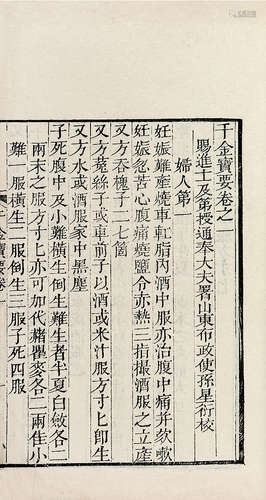 千金寶要卷之一
賜進士及第授通奉大夫署山東布政使孫星衍校
婦人第一
妊娠難產燒車軭脂內酒中服亦治腹中痛并欬嗽
妊娠忽苦心腹痛燒鹽令赤熱三指撮酒服之立產
又方吞槐子二七箇
又方莵絲子或車前子以酒或米汁服方寸匕即生
又方水或酒服竈中黑塵
子死腹中及小難橫生倒生難生者半夏白斂各二
兩末之服方寸匕亦可加代赭瞿麥各二兩佳小
難一服橫生二服倒生三服子死四服
千金寶要卷一